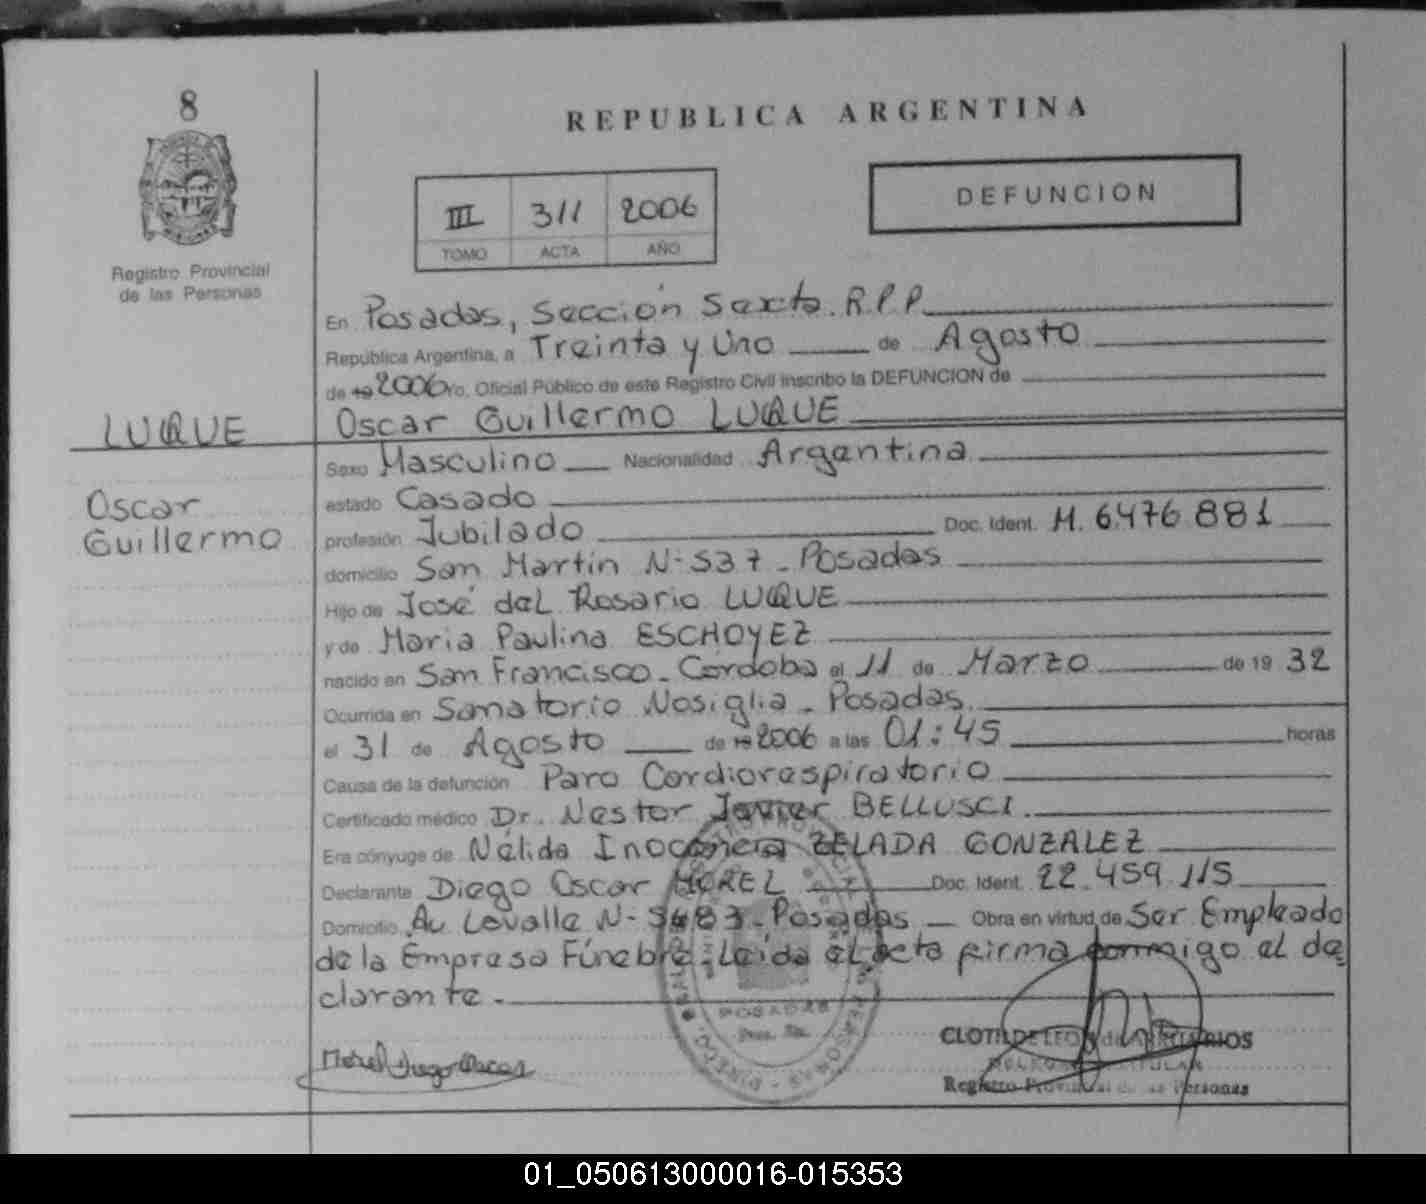 8
REPUBLICA ARGENTINA
DEFUNCION
III 311 2006
TOMO ACTA AÑO
Registro Provincial
de las Personas
En Posadas, Sección Sexta. R.P.P.
República Argentina, a Treinta y Uno de Agosto
de 19 2006 Yo, Oficial Público de este Registro Civil inscribo la DEFUNCION de
LUQUE
Oscar Guillermo LUQUE
Sexo Masculino Nacionalidad Argentina
Oscar
Guillermo
estado Casado
profesión Jubilado Doc. Ident. M. 6.476.881
domicilio San Martín N- 537 - Posadas
Hijo de José del Rosario LUQUE
y de María Paulina ESCHOYEZ
nacido en San Francisco - Cordoba el 11 de Marzo de 19 32
Ocurrida en Sanatorio Nosiglia - Posadas.
el 31 de Agosto de 19 2006 a las 01:45 horas
Causa de la defunción Paro Cardiorespiratorio
Certificado médico Dr. Nestor Javier BELLUSCI.
Era cónyuge de Nélida Inocencia ZELADA GONZALEZ
Declarante Diego Oscar MOREL Doc. Ident. 22.459.115
Domicilio Av Lavalle N- Posadas Obra en virtud de Ser Empleado
de la Empresa Fúnebre. Leída el acta firma conmigo el de
clarante.
POSADAS
Morel Diego Oscar
CLOTILDE
TITULAR
Registro Provincial de las Personas
01_050613000016-015353